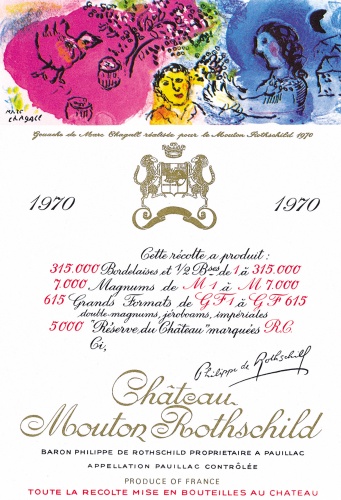 MARC
CHAGALL
Gouache de Marc Chagall réalisée pour le Mouton Rothschild 1970
1970 1970
Cette récolte a produit :
315.000 Bordelaises et 1/2 Bses de 1 à 315.000
7000 Magnums de M 1 à M 7.000
615 Grands Formats de G F 1 à G F 615
double magnums, jéroboams, impériales
5000 "Réserve du Château" marquées R.C.
Ci,
Philippe de Rothschild
Château
Mouton Rothschild
BARON PHILIPPE DE ROTHSCHILD PROPRIETAIRE A PAUILLAC
APPELLATION PAUILLAC CONTRÔLÉE
PRODUCE OF FRANCE
TOUTE LA RECOLTE MISE EN BOUTEILLES AU CHATEAU